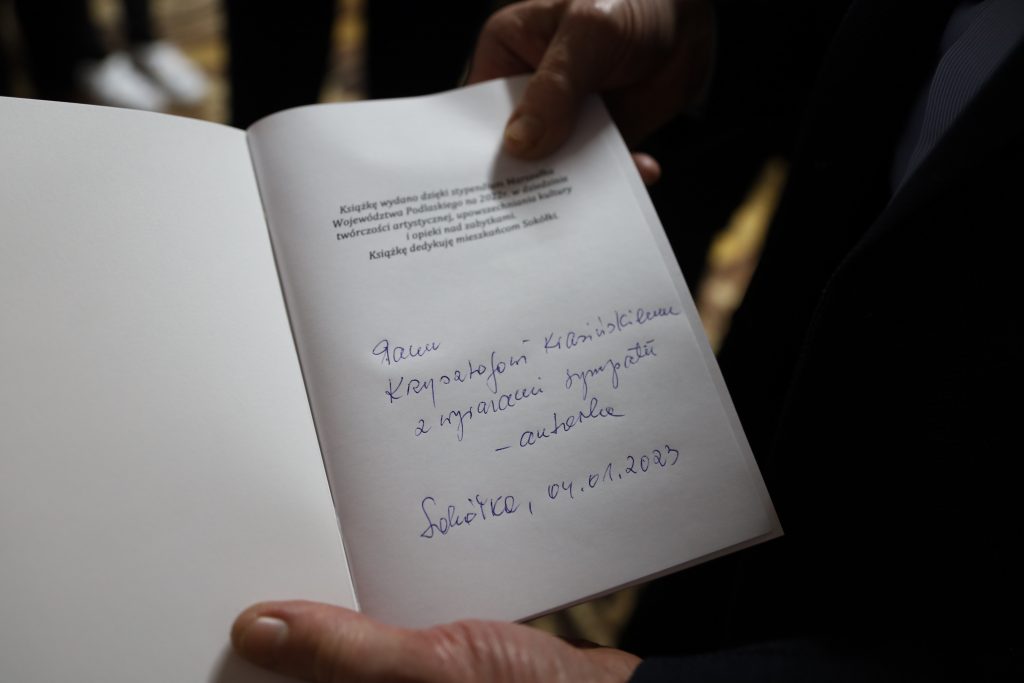 Książkę wydano dzięki stypendium Marszałka
Województwa Podlaskiego na 2022r. w dziedzinie
twórczości artystycznej, upowszechniania kultury
i opieki nad zabytkami.
Książkę dedykuję mieszkańcom Sokółki.
Panu
Krzysztofowi Krasińskiemu
z wyrazami sympatii
- autorka
Sokółka, 04.01.2023